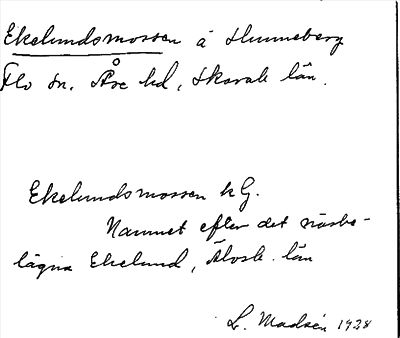 Ekelundsmossen å Hunneberg
Flo sn. Åse hd, Skarab. län.
Ekelundsmossen k G.
Namnet efter det närbe-
lägna Ekelund, Älvsb. län
L. Madsén 1928